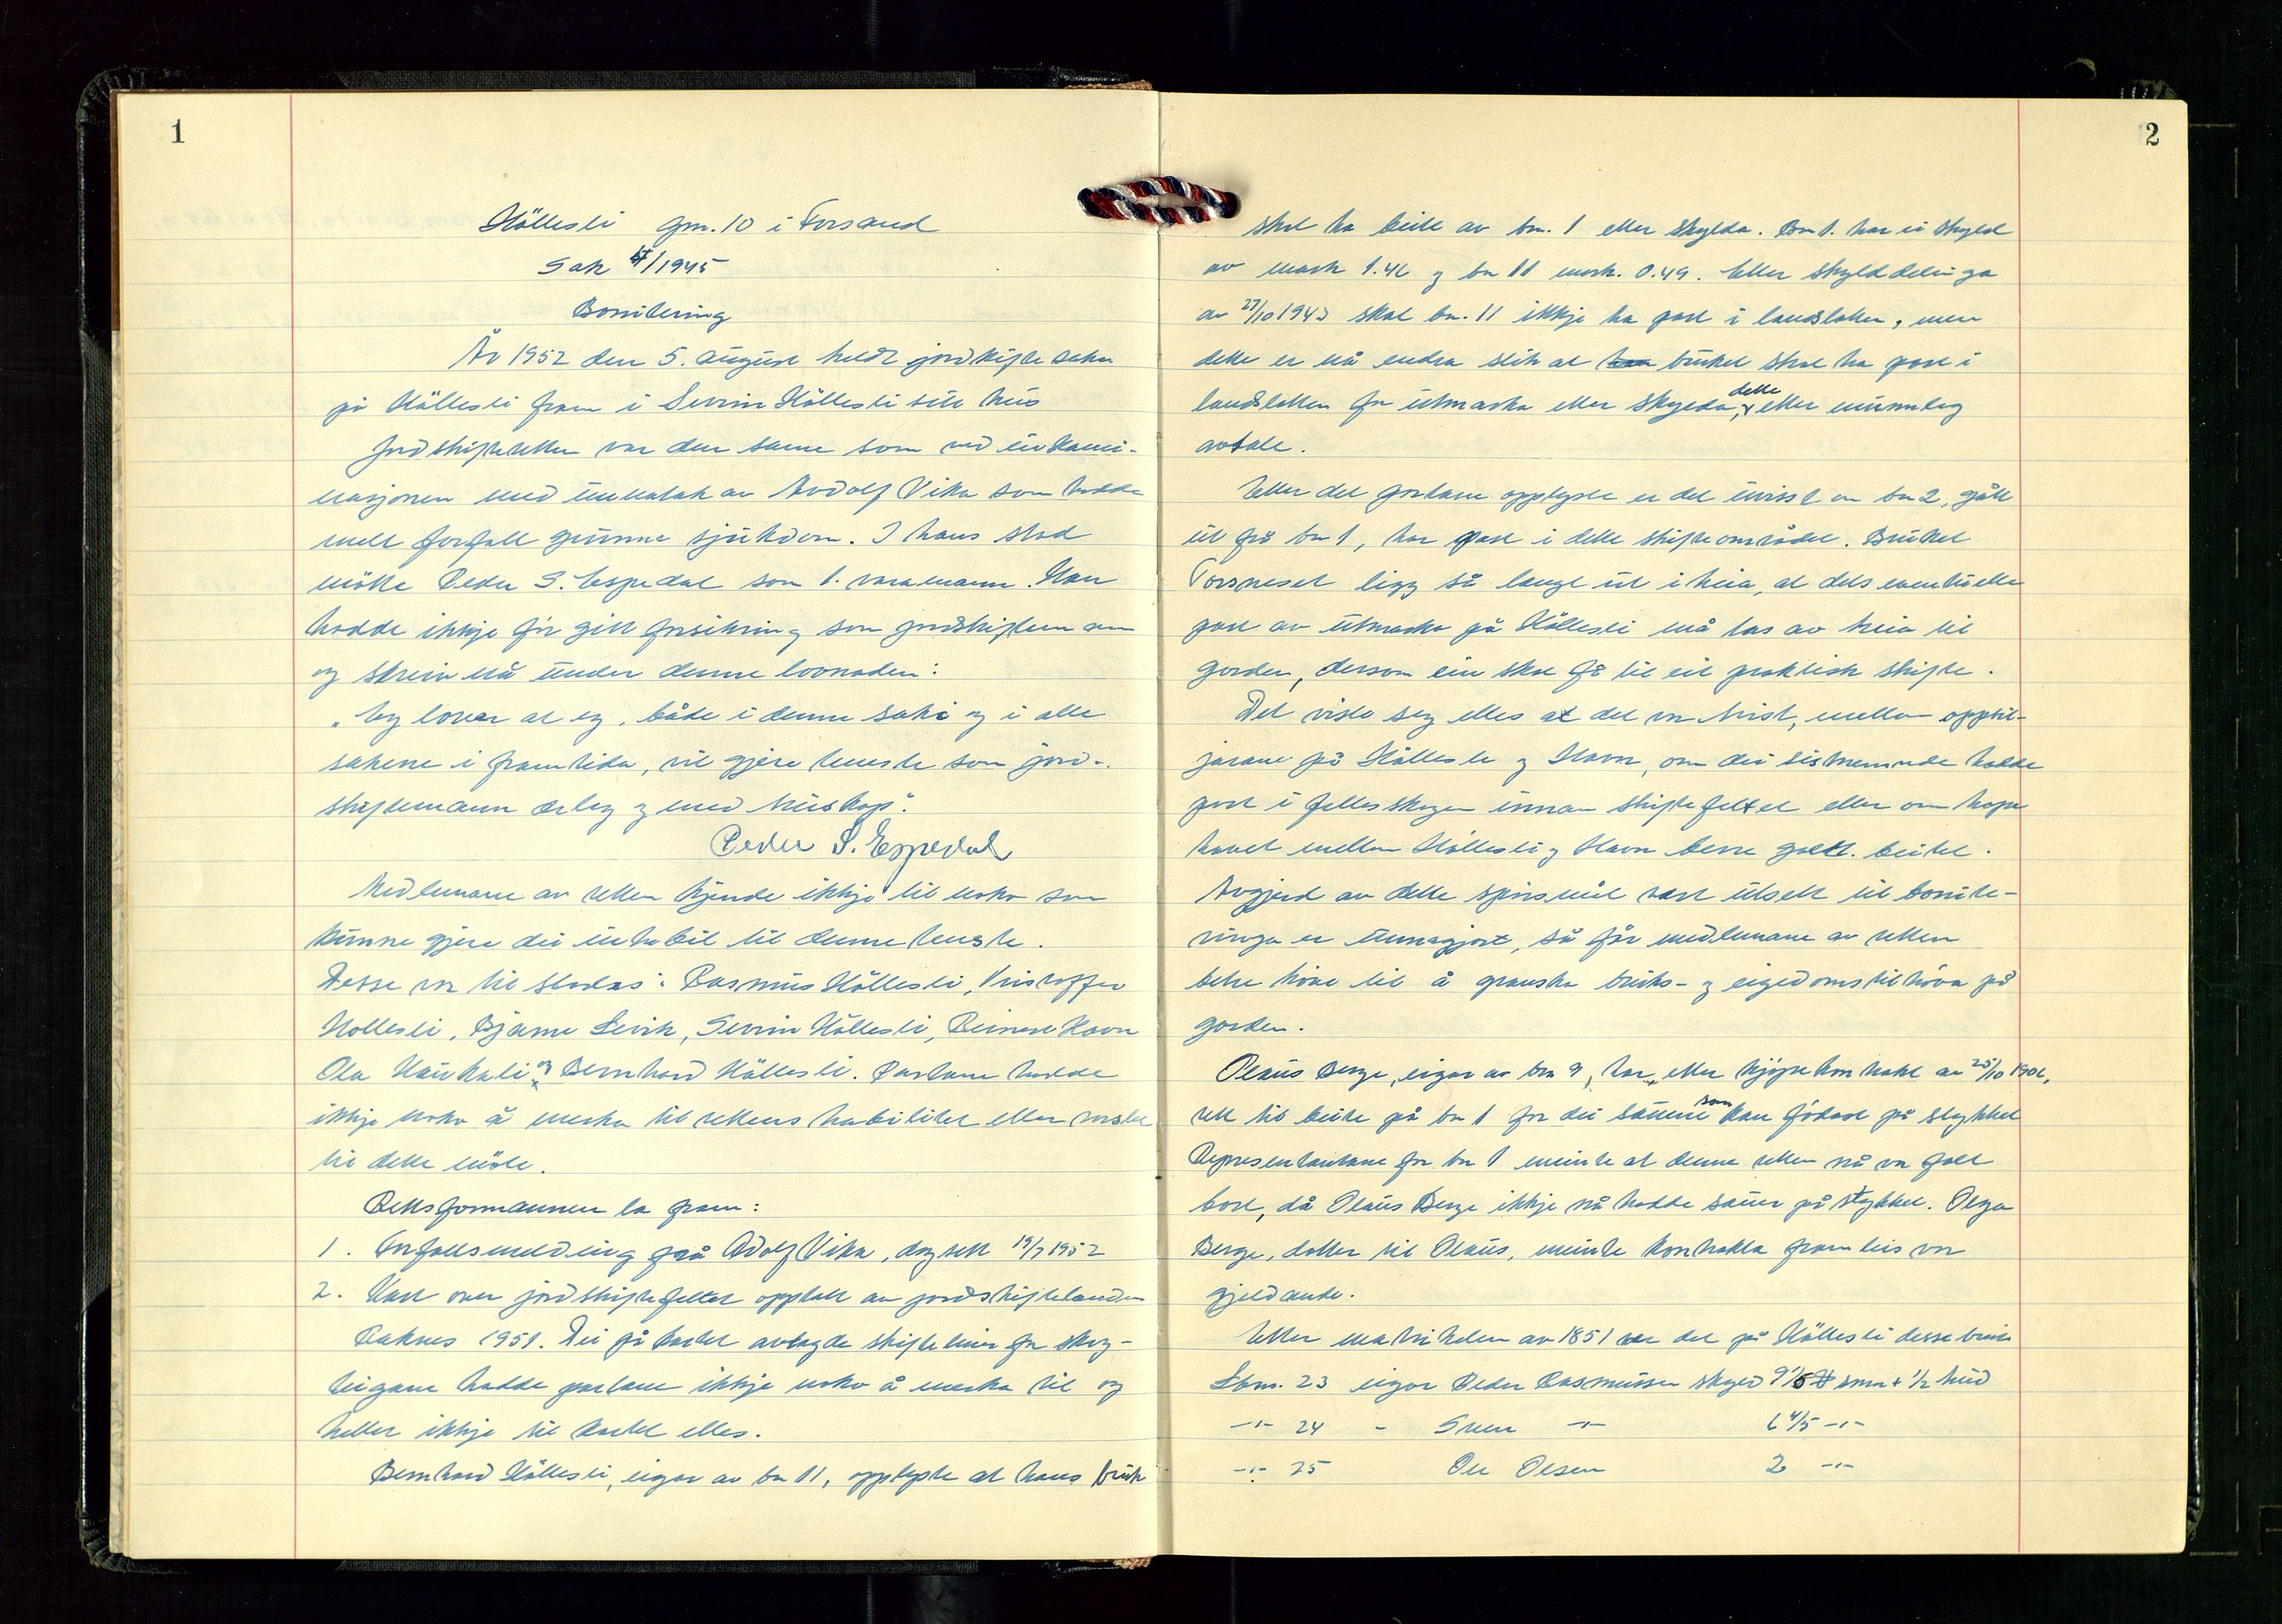 1
Höllesli gnr. 10 i Forsand
Sak 4/1945
Bonitering
År 1952 den 5. august heldt jordskifte
på Höllesli fram i Sevrin Höllesli sitt hus
Jordskifteretten var den same som ved
med unnatak av Adolf Vika som hadde
meldt forfall grunna sjukdom. I hans stad
mötte Peder S. Espedal som 1. varamann. Han
hadde ikkje før gitt forsikring som jordskiftemann
og skreiv nå under denne lovnaden:
"Eg lovar at eg, både i denne saki og i alle
sakene i framtida, vil gjera teneste som jord-
skiftemann ærleg og med truskap".
Peder S. Espedal
Medlemane av retten kjende ikkje til noko som
kunne gjera dei inhabil til denne teneste.
Desse var til stades: Rasmus Höllesli, Kristoffer
Hollesli, Bjarne Levik, Sevrin Höllesli, Reinert Havn
Ola Haukali og Bernhard Höllesli. Partane hadde
ikkje noko å merka til rettens habilitet eller varslet
til dette möte.
Rettsformannen la fram:
1. Forfallsmelding frå Adolf Vika, dagsett 19/7 1952
2. Kart over jordskiftefeltet opptatt av jordskiftekandidat
Raknes 1951. Dei på kartet avlagde skiftelinier for skog-
teigane hadde partane ikkje noko å merka til og
heller ikkje til kartet elles.
Bernhard Höllesli, eigar av bn 11, opplyste at hans bruk
2
skal ha beite av bn. 1 etter skylda. Bn 1. har ei skyld
av mark 1.42 og bn 11 mark. 0.49. Etter skylddelinga
av 27/10 1943 skal bn. 11 ikkje ha part i landslotten, men
dette er nå endra slik at bruket skal ha part i
landslotten for utmarka etter skylda, dette etter munnleg
avtale.
Etter det partane opplyste er det uvisst om bn 2, gått
ut frå bn 1, har part i dette skifteområdet. Bruket
Torsneset ligg så langt ut i heia, at dets eventuelle
part av utmarka på Höllesli må tas av heia til
garden, dersom ein skal få til eit praktisk skifte.
Det viste seg elles at det var tvist, mellom oppsit-
jarane på Höllesli og Havn, om dei sistnemnde hadde
part i fellesskogen innan skiftefeltet eller om
havet mellom Höllesli og Havn berre galdt. beitet.
Avgjerd av dette spörsmål vart utsett til bonite-
ringa er unnagjort, så får medlemane av retten
betre höve til å granska bruks- og eigedomstilhöva på
garden.
Olaus Berge, eigar av bn 9, har, etter kjöpekontrakt av 25/10 1902,
rett til beite på bn 1 for dei sauene som kan födast på stykket
Representantane for bn 1 meinte at denne retten nå var falt
bort, då Olaus Berge ikkje nå hadde sauer på stykket. Olga
Berge, dotter til Olaus, meinte kontrakta framleis var
gjeldande.
Etter matrikelen av 1851 var det på Höllesli desse bruk
Lbnr. 23 eigar Peder Rasmussen skyld 9 1/5 smør + 1/2 hud
-"- 24 - Sven -"- 6 4/5 -"-
-"- 25 Ole Olsen 2 -"-